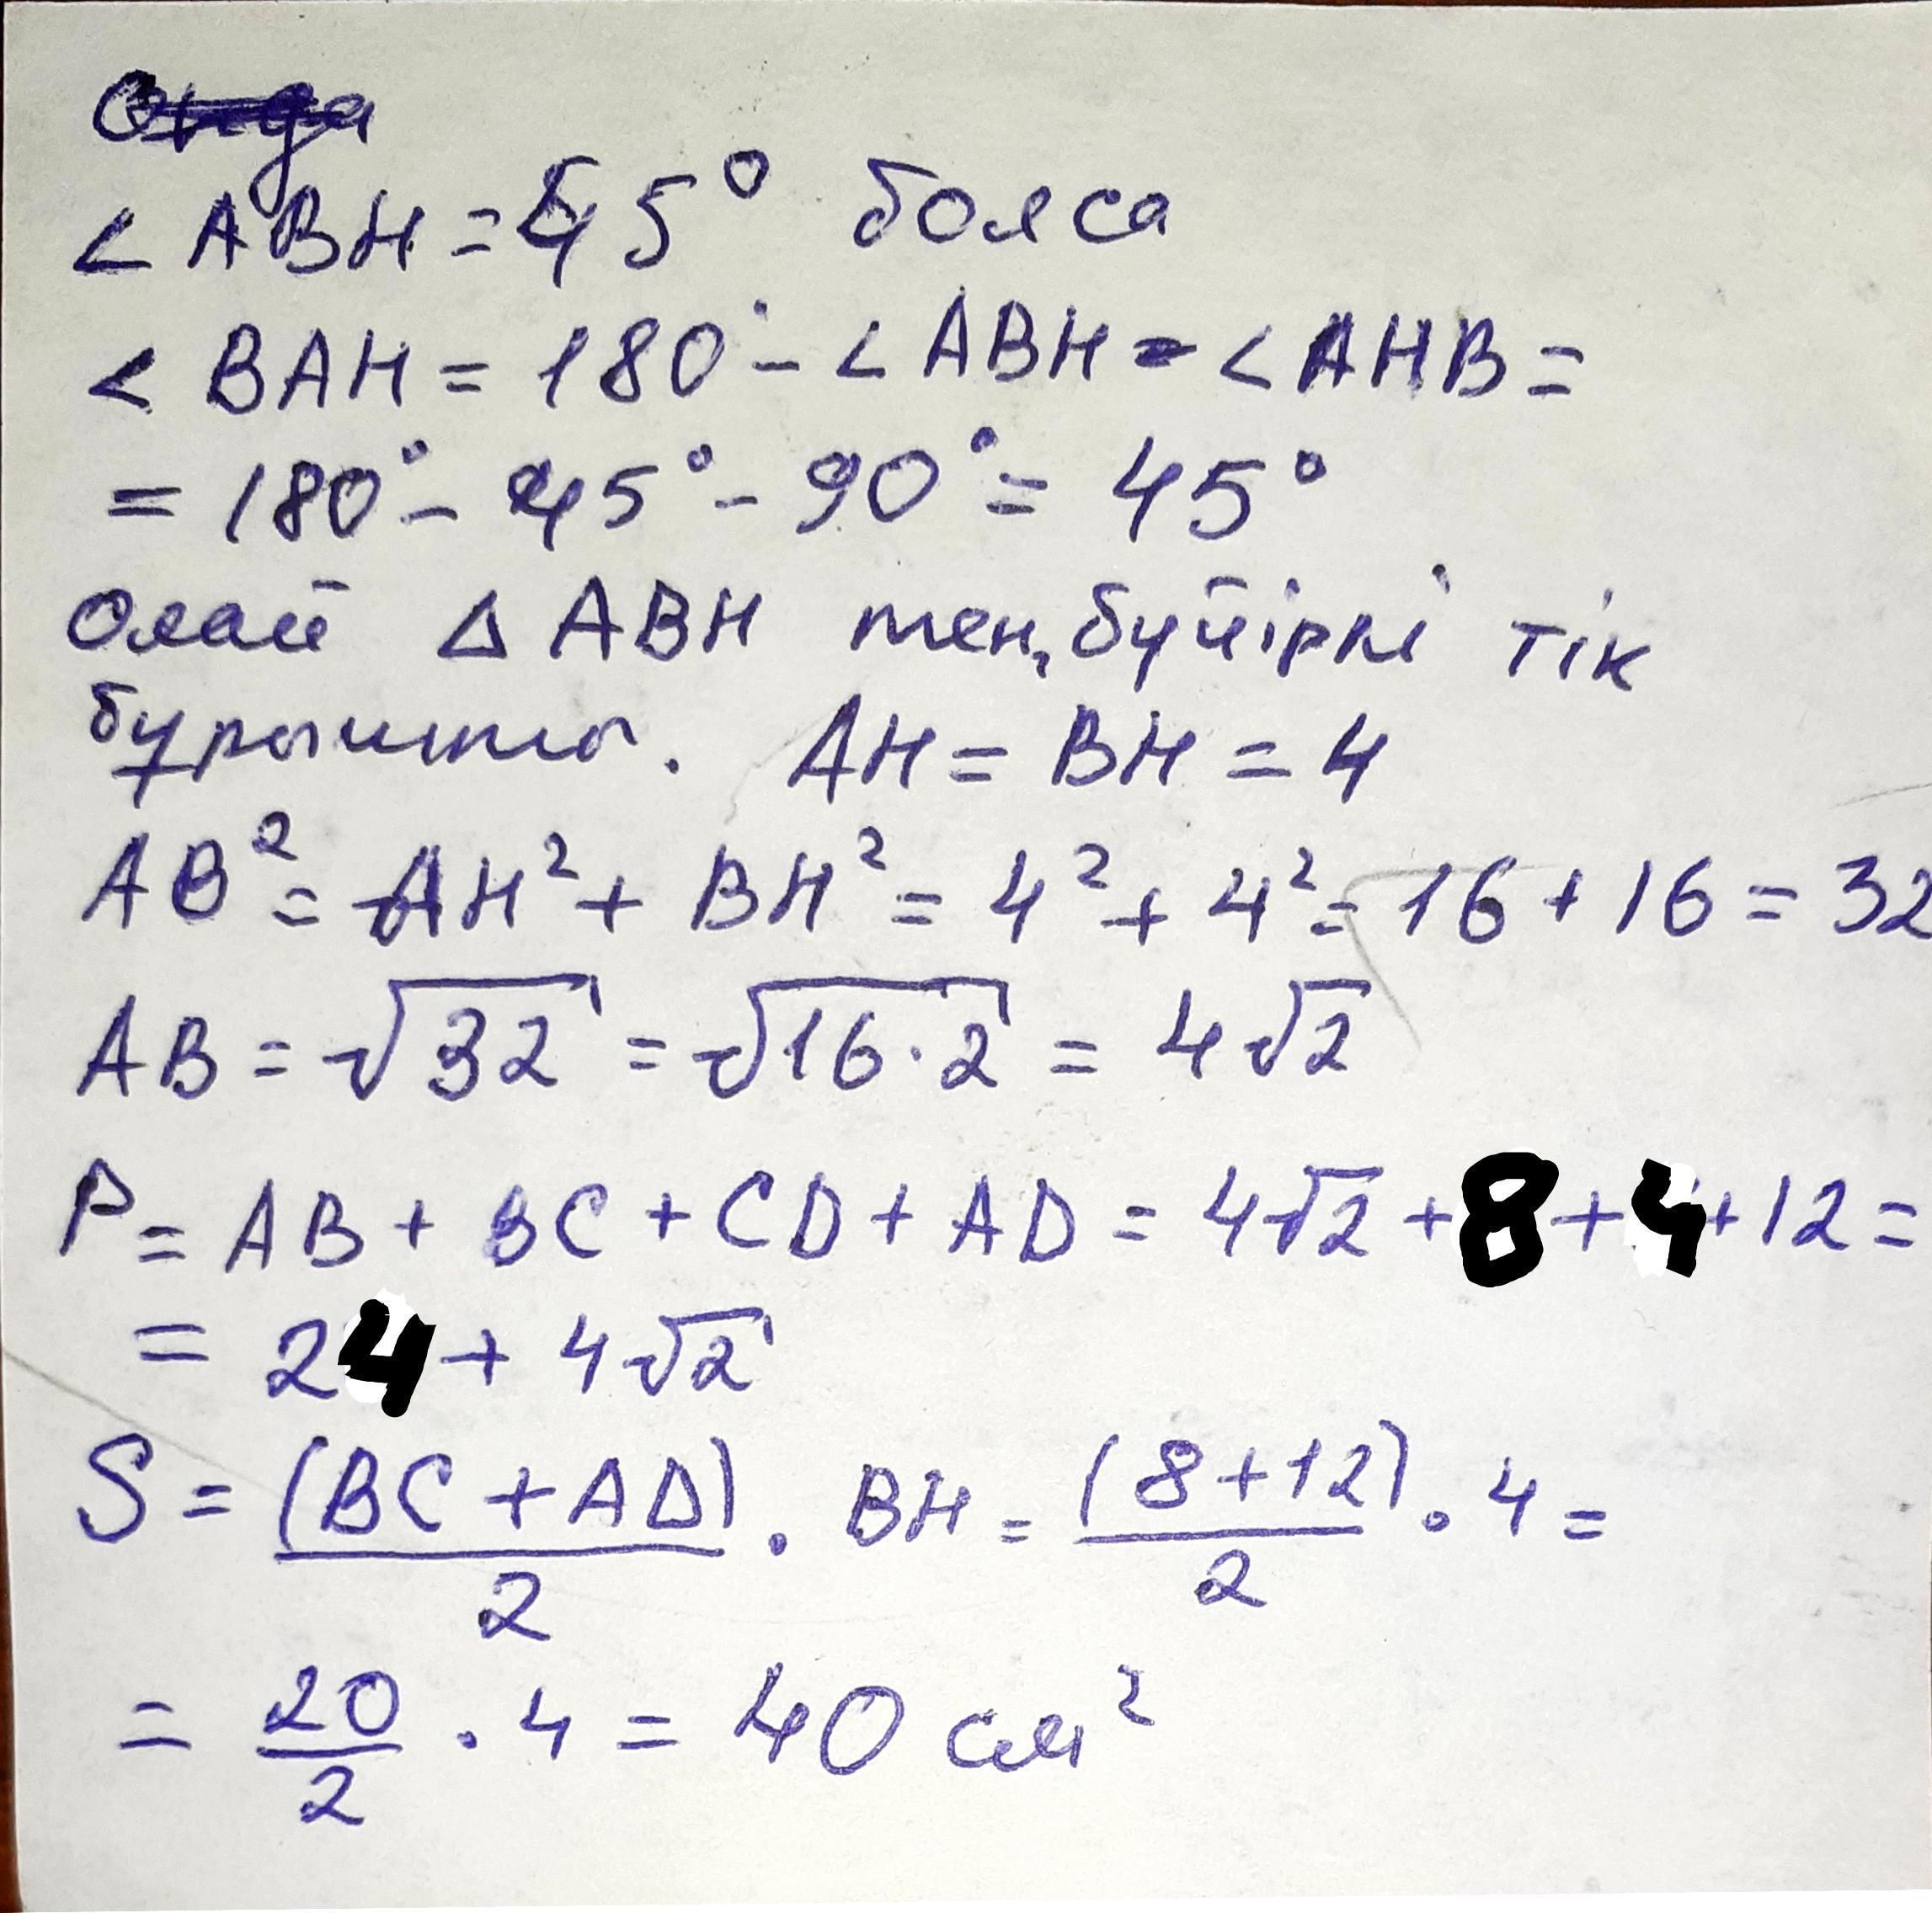 Онда
< ABH = 45° болса
< BAH = 180° - < ABH - < AHB =
= 180° - 45° - 90° = 45°
Олай Δ ABH тең бүйірлі тік
бұрышты. AH = BH = 4
AB² = AH² + BH² = 4² + 4² = 16 + 16 = 32
AB = √32 = √16·2 = 4√2
P = AB + BC + CD + AD = 4√2 + 8 + 4 + 12 =
= 24 + 4√2
S = (BC + AD)/2 · BH = (8+12)/2 · 4 =
= 20/2 · 4 = 40 см²